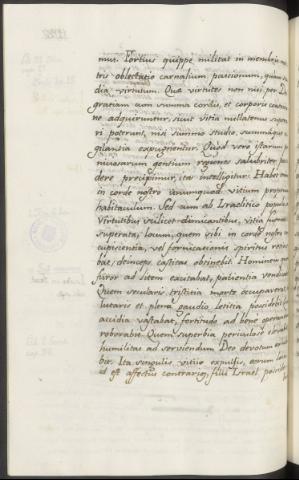 mus. Fortius quippe militat in membris nos
tris oblectatio carnalium passionum, quam stu
dia virtutum. Quæ virtutes non nisi per Dei
gratiam cum summa cordis, et corporis contritio
ne adquiruntur; sicut vitia nullatenus supera
ri poterunt, nisi summo studio, summâque vi
gilantia expugnentur. Quod vero istarum per
niciosarum gentium regiones salubriter pos
dere præcipimur, ita intelligitur: Habet enim
in corde nostro unumquodq vitium proprium
habitaculum. Sed cum ab Israelitico populo
Virtutibus scilicet dimicantibus, vitia fuerint
superata; locum, quem sibi in corde nostro con
cupiscentia, vel fornicationis spiritus retine
bat, deinceps castitas obtinebit. Hominem quem
furor ad litem excitabat, patientia vendicat
Quem sæcularis tristitia morte occupaverat
lutaris et plena gaudio letitia possidebit
accidia vastabat, fortitudo ad bene
roborabit. Quem superbia
humilitas ad serviendum Deo devotum
bit. Ita singulis vitiis expulsis, eorum loca
id est affectus contrarios, filii Israel